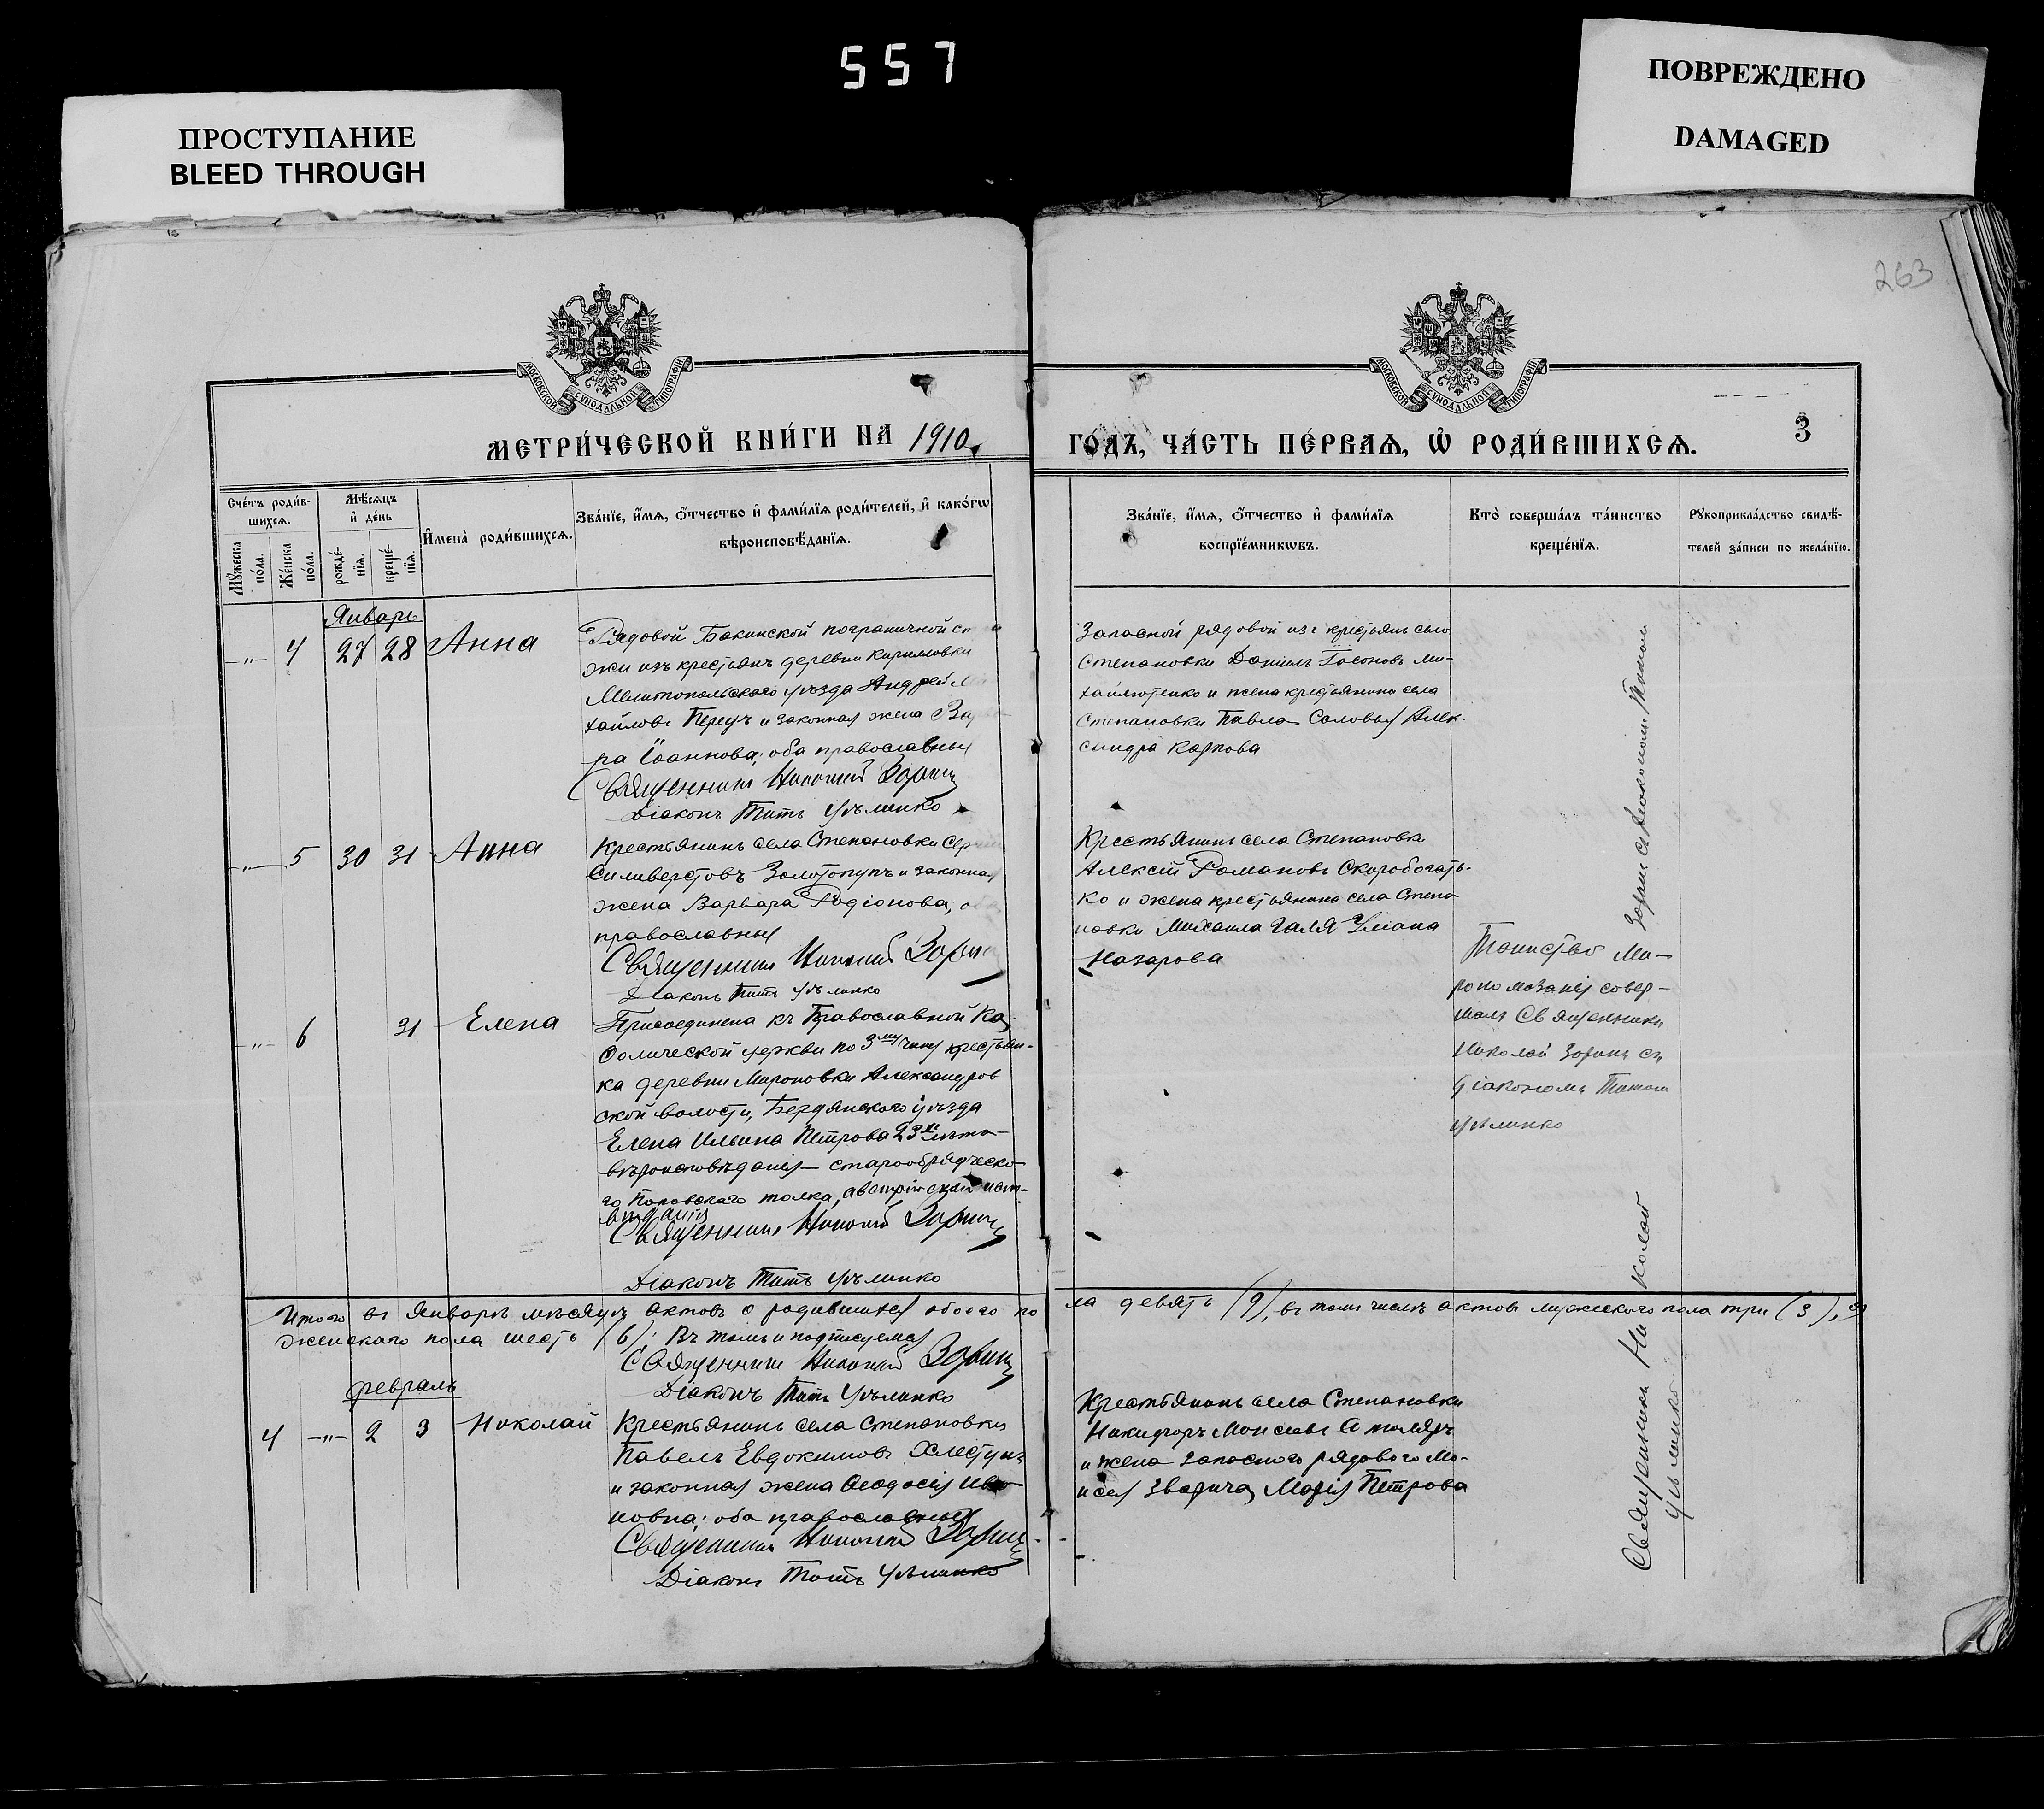 557
ПРОСТУПАНИЕ
BLEED THROUGH
ПОВРЕЖДЕНО
DAMAGED
263
МОСКОВСКОЙ СѴНОДАЛЬНОЙ ТИПОГРАФІИ
МОСКОВСКОЙ СѴНОДАЛЬНОЙ ТИПОГРАФІИ
МЕТРИ́ЧЕСКОЙ КНИ́ГИ НА 1910.
ГО́ДЪ, ЧА́СТЬ ПЕ́РВАѦ, Ѡ҆ РОДИ́ВШИХСѦ.
3
Сче́тъ роди́в-
шихсѧ.
Мꙋ́жеска по́ла.
Же́нска по́ла.
Мѣ́сѧцъ
и҆ де́нь
рожде́-
нїѧ.
креще́-
нїѧ.
И҆мена̀ роди́вшихсѧ.
Зва́нїе, и҆́мѧ, ѻ҆́тчество и҆ фами́лїѧ роди́телей, и҆ како́гѡ
вѣроисповѣ́данїѧ.
Зва́нїе, и҆́мѧ, ѻ҆́тчество и҆ фами́лїѧ
воспрїе́мникѡвъ.
Кто̀ соверша́лъ та́инство
креще́нїѧ.
Рꙋкоприкла́дство свидѣ́-
телей за́писи по жела́нїю.
Январь
-"- 4 27 28 Анна
Рядовой Бакинской пограничной
жи изъ крестьянъ деревни Кирилловки
Мелитопольскаго уѣзда Андрей
хайловъ Перецъ и законная жена
ра Іоаннова; оба православныя
Священникъ Николай Зоринъ
Діаконъ Титъ Уѣлинко
Запасной рядовой изъ крестьянъ села
Степановки Даніилъ Гасоновъ Ми-
хайлютенко и жена крестьянина села
Степановки Павла Соловья Алек-
сандра Карпова
-"- 5 30 31 Анна
Крестьянинъ села Степановки
Сильверстовъ Золотопупъ и законная
жена Варвара Родіонова;
православныя
Священникъ Николай Зоринъ
Діаконъ Титъ Уѣлинко
Крестьянинъ села Степановки
Алексѣй Романовъ Скоробогать-
ко и жена крестьянина села Степа-
новки Михаила Галя Уліана
Назарова
-"- 6 31 Елена
Присоединена къ Православной Ка-
ѳолической церкви по 3му чину крестьян-
ка деревни Мироновки Александров
ской волости, Бердянскаго уѣзда
Елена Ильина Петрова 23хъ лѣтъ
вѣроисповѣданія – старообрядческо-
го Поповскаго толка, австрійскаго
Священникъ Николай Зоринъ
Діаконъ Титъ Уѣлинко
Таинство Ми-
ропомазанія совер-
шалъ Священникъ
Николай Зоринъ съ
діакономъ Титомъ
Уѣлинко
Итого въ Январѣ мѣсяцѣ актовъ о родившихся обоего по
ла девять (9), въ томъ числѣ актовъ мужескаго пола три (3), а
женскаго пола шесть (6). Въ томъ и подписуемся
Священникъ Николай Зоринъ
Діаконъ Титъ Уѣлинко
Февраль
4 -"- 2 3 Николай
Крестьянинъ села Степановки
Павелъ Евдокимовъ Хлестунъ
и законная жена Ѳеодосія Ива-
новна; оба православныя
Священникъ Николай Зоринъ
Діаконъ Титъ Уѣлинко
Крестьянинъ села Степановки
Никифоръ Моисеевъ Столяръ
и жена запаснаго рядового Мо-
исея Зварича Марія Петрова
Священникъ Николай Зоринъ съ діакономъ Титомъ
Уѣлинко